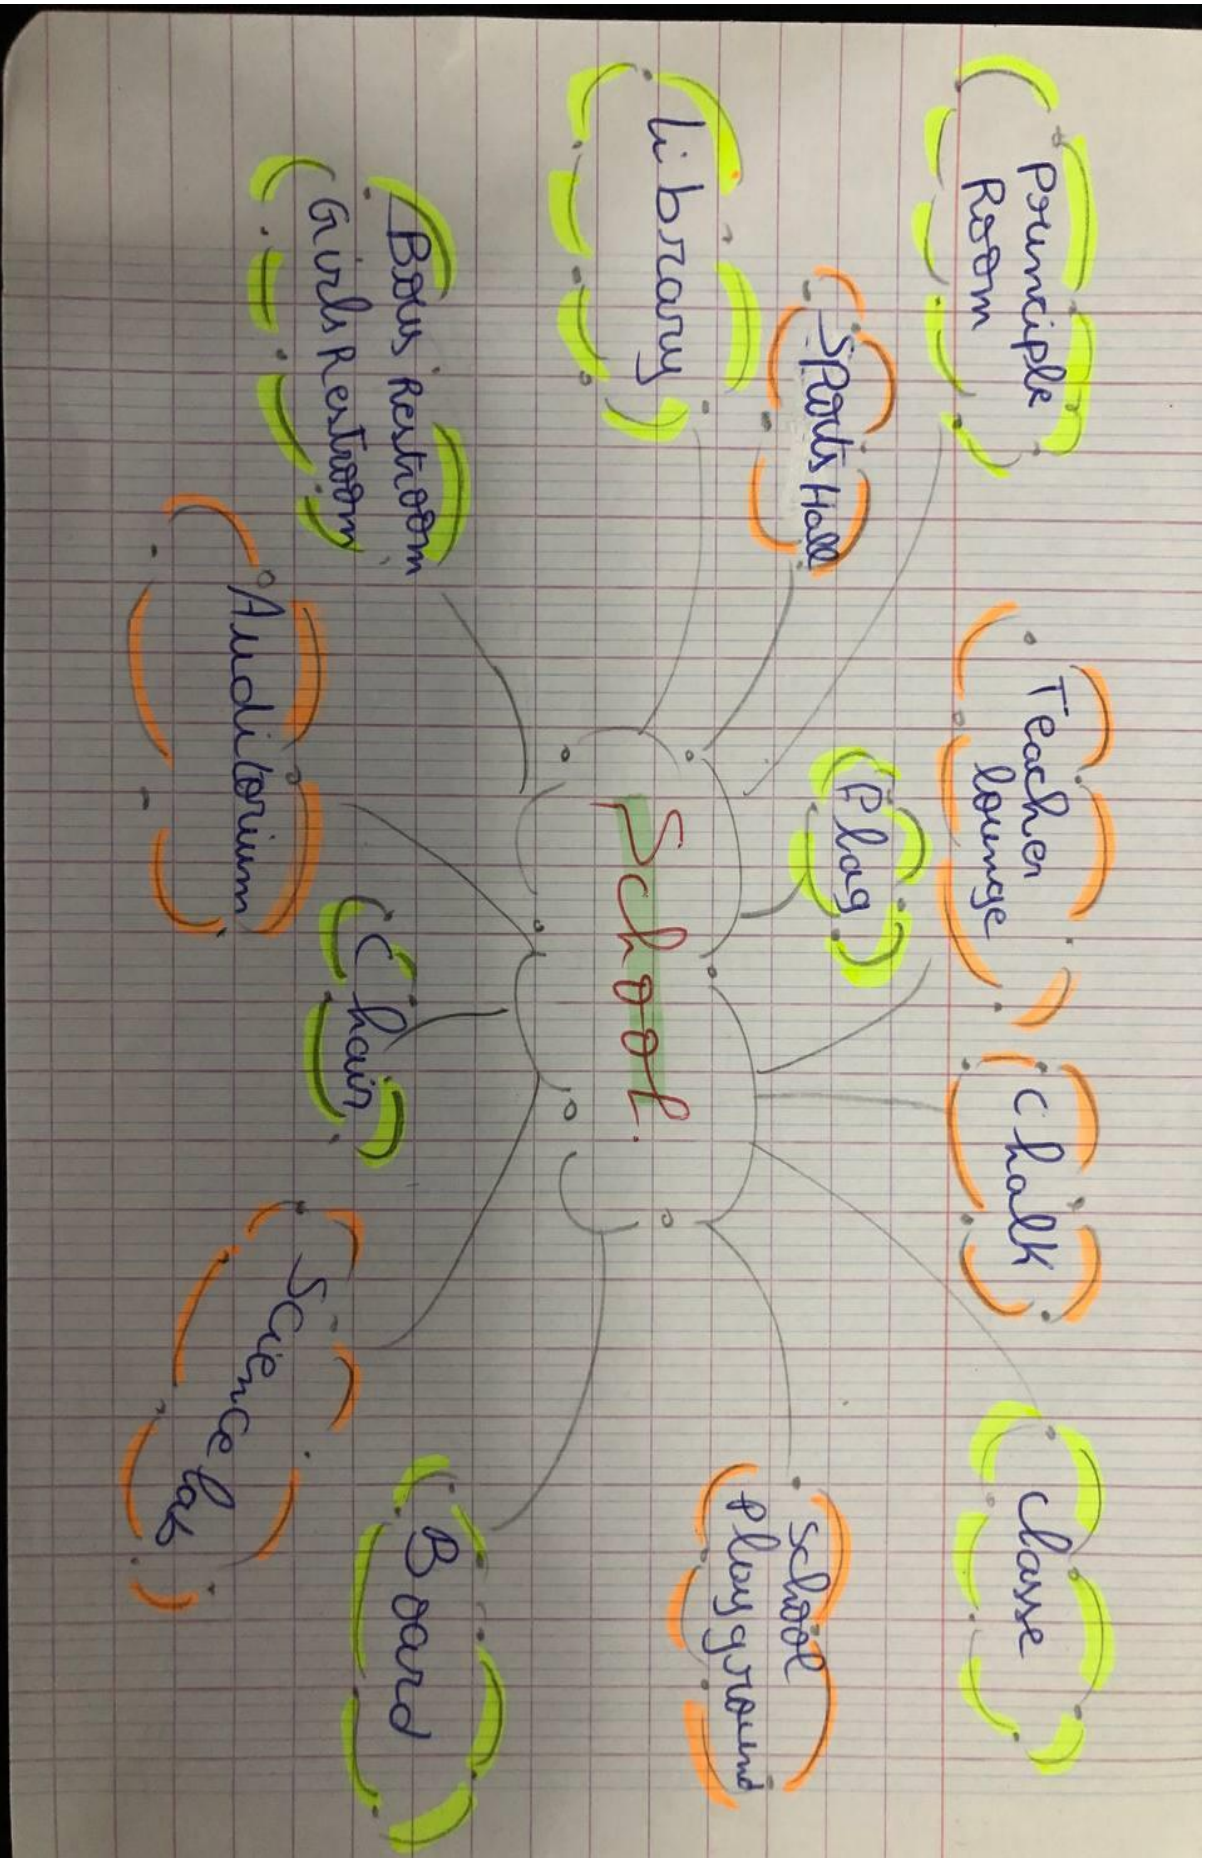 Principle
Room
Teacher
lounge
Chalk
Classe
Sports Hall
Plag
School
Playground
Library
School.
Boys Restroom
Girls Restroom
Chair
Board
Auditorium
Science lab